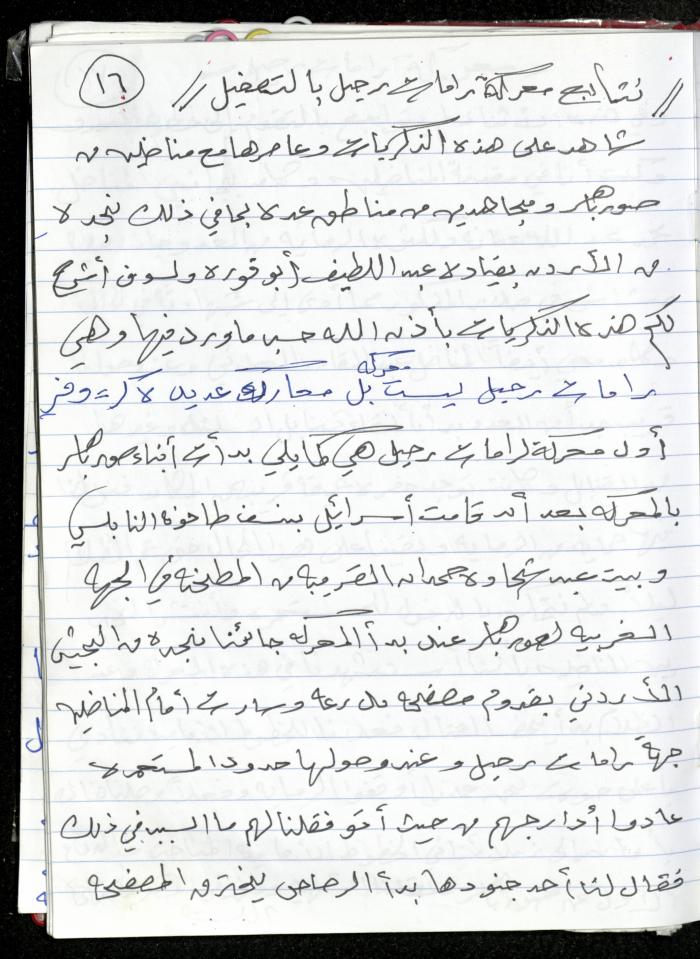 ١٦
// نتائج معركة رامات رحيل بالتفصيل //
شاهد على هذه الذكريات وعاصرها مع مناضلين من
صورباهر ومجاهدين من مناطق عده بما في ذلك نجده
من الأردن بقيادة عبد اللطيف أبو قوره ولسوف أشرح
لكم هذه الذكريات بأذن الله حسب ما ورد فيها وهي
معركه
رامات رحيل ليست بل معارك عديده لأكر وفر
أول معركة لرامات رحيل هي كما يلي بدأت أبناء صورباهر
بالمعركه بعد أن قامت أسرائيل بنسف طاحونة النابلسي
وبيت عبد شحاده حمدان القريبه من المطحنه في الجهه
الغربيه لصورباهر عند بدأ المعركه جائتنا نجده من الجيش
الأردني بقدوم مصفحه مدرعه وسارت أمام المناضلين
جهة رامات رحيل وعند وصولها حدود المستعمره
عادوا أدارجهم من حيث أتو فقلنا لهم ما السبب في ذلك
فقال لنا أحد جنودها بدأ الرصاص يخترق المصفحه